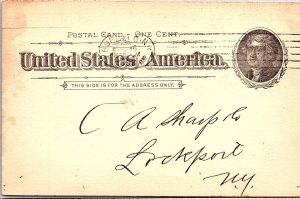 POSTAL CARD, ONE CENT.
United States of America.
THIS SIDE IS FOR THE ADDRESS ONLY.
C A Sharp Co
Lockport
N.Y.